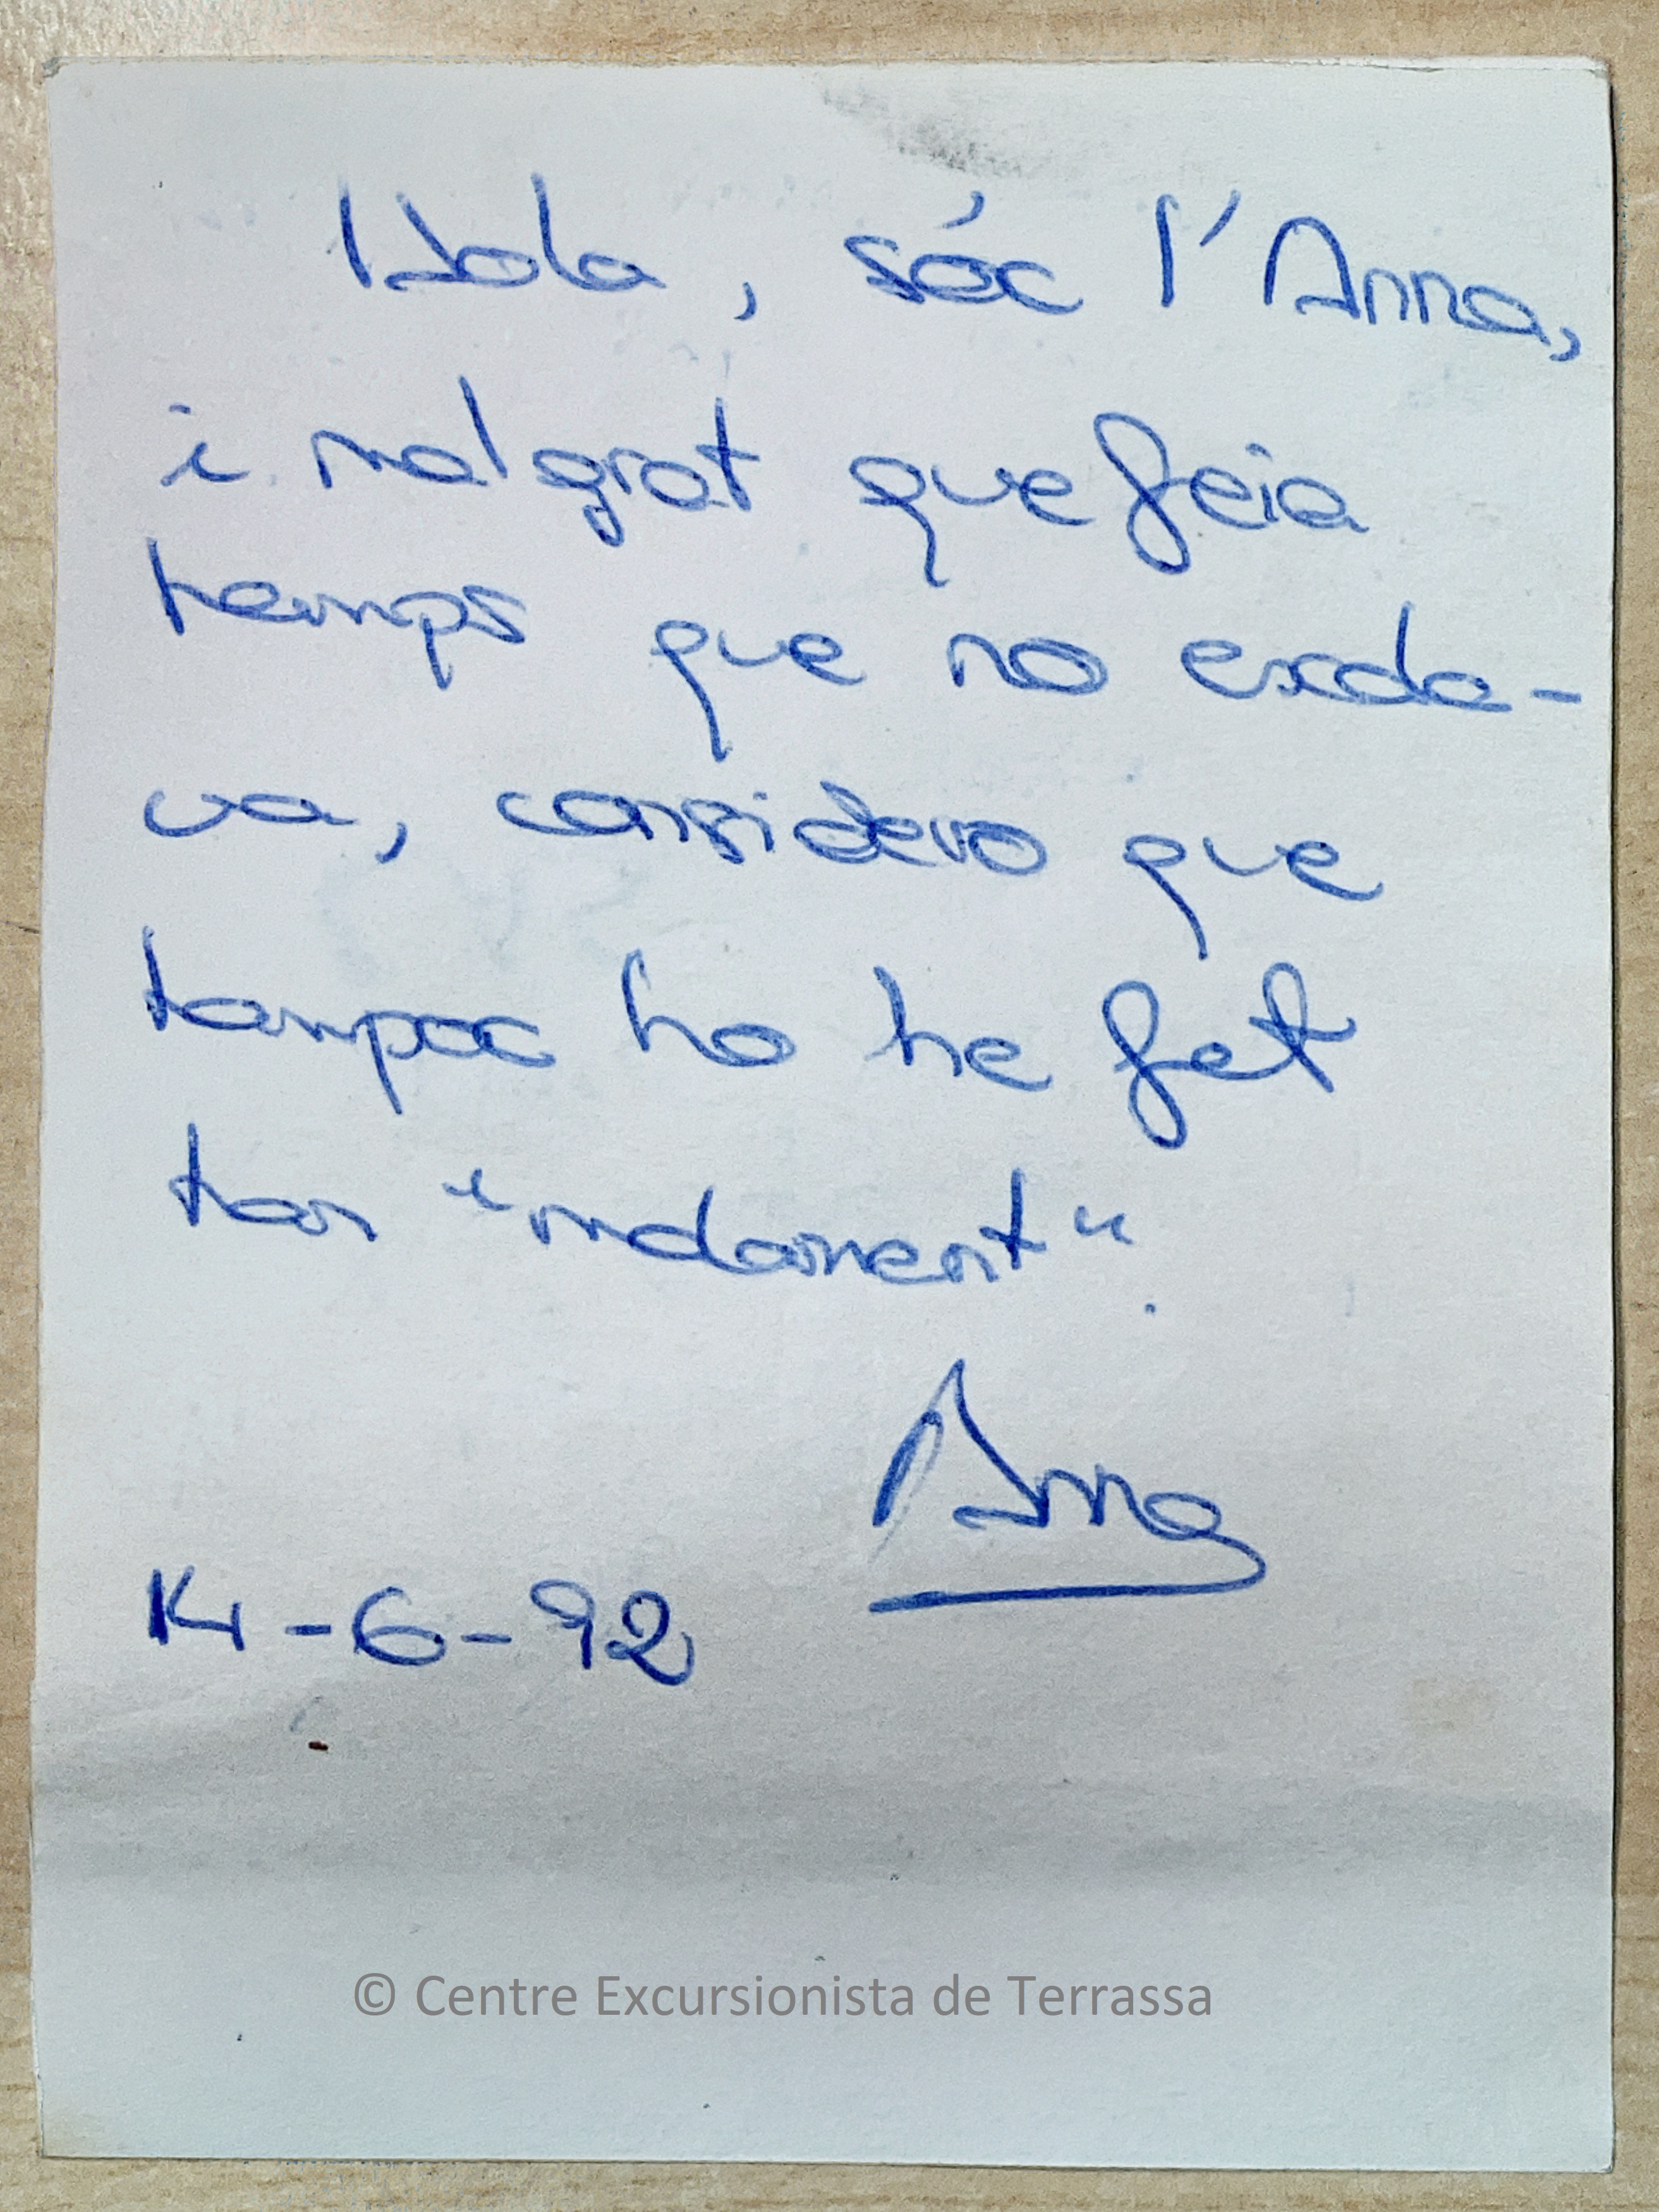 Hola, sóc l'Anna,
i malgrat que feia
temps que no escala-
va, considero que
tampoc ho he fet
tan "malament".
Anna
14-6-92
© Centre Excursionista de Terrassa